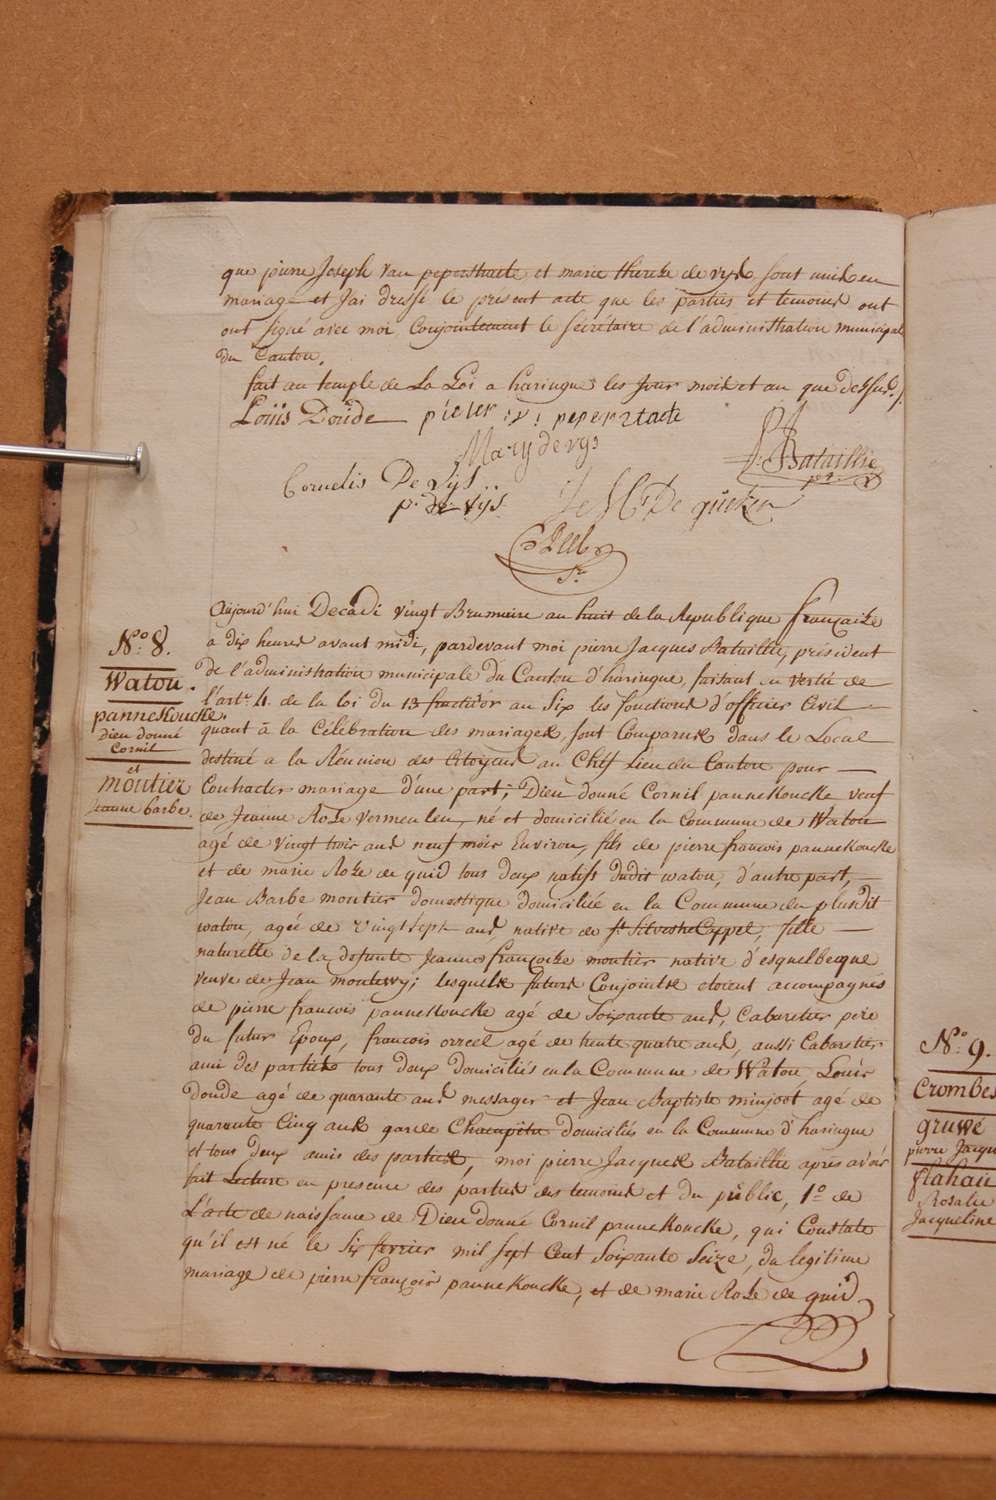 que pierre Joseph van peperstraete et marie therese de vys sont unis en
mariage et J'ai dressé le présent acte que les parties et temoins ont
ont signé avec moi Conjointement le sécrétaire de l'administration municipale
du Canton.
fait au temple de La Loi a haringue les Jour mois et an que dessus./.
Loüis Doúde pieter peperstracte
Mary de vys
P. J. Bataillie
Cornelis De Vijs..
p. de vys.
N.o 8.
Watou.
panneKoucke.
dieu donné
Cornil
et
moutier
jeanne barbe.
Aujourd'hui Decadi vingt Brumaire an huit de la République françaize
a dix heures avant midi, pardevant moi pierre Jacques Bataillie, président
de l'administration municipale du Canton d'haringue, faisant en vertu de
l'art. 4. de la loi du 13 fructidor an Six les fonctions d'officier Civil
quant à la Célébration des mariages, sont Comparus dans le Local
destiné a la Réunion des Citoyens au Chef Lieu du Canton pour
Contracter mariage d'une part; Dieu donné Cornil panneKoucke veuf
de Jeanne Roze Vermeulen, né et domicilié en la Commune de Watou
agé de vingt trois ans neuf mois Environ, fils de pierre francois panneKoucke
et de marie Roze de quid tous deux natifs dudit watou, d'autre part,
Jean Barbe moutier domestique domiciliée en la Commune du plusdit
watou, agée de vingt sept ans, native de St Silvestre Cappel, fille
naturelle de la defunte Jeanne françoize moutier native d'esquelbecque
veuve de Jean monteny; lesquels futurs Conjoints etoient accompagnés
de pierre francois panneKoucke agé de Soixante ans, Cabaretier pere
du futur Epoux, francois orreel agé de trente quatre ans, aussi Cabaretier
ami des parties tous deux domiciliés en la Commune de Watou Louis
doude agé de quarante ans messager et Jean Baptiste minjoot agé de
quarante Cinq ans garde Champêtre domiciliés en la Commune d'haringue
et tous deux amis des parties, moi pierre Jacques Bataillie après avoir
fait Lecture en presence des parties des temoins et du public, 1.o de
L'acte de naissance de Dieu donné Cornil panneKoucke, qui Constate
qu'il est né le Six fevrier mil sept Cent Soixante Seize, du legitime
mariage de pierre françois panneKoucke, et de marie Roze de quid
N.o 9.
Crombe
gruwé
pierre Jacqu
flahau
Rosalie
Jacqueline